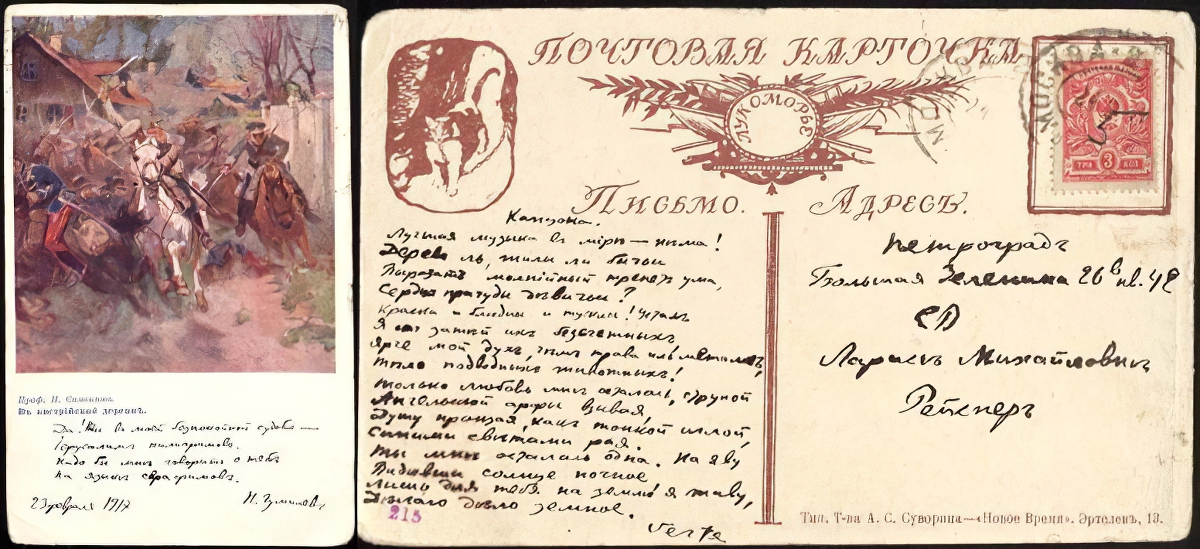 Проф. Н. Самокишъ.
Въ австрійской деревнѣ.
Да! Ты въ моей безпокойной судьбѣ —
Іерусалимъ пилигримовъ.
Надо бы мнѣ говорить о тебѣ
На языкѣ серафимовъ.
23 февраля 1917 Н. Гумилевъ
ПОЧТОВАЯ КАРТОЧКА
ЛУКОМОРЬЕ
МОСКВА
ТРИ 3 КОП
ПИСЬМО. АДРЕСЪ.
Канцона.
Лучшая музыка въ мірѣ — нѣма!
Дерево ль, жилы ли бычьи
Выразятъ молнійный трепетъ ума,
Сердца причуды дѣвичьи?
Краски и блѣдны и тусклы! Усталъ
Я отъ затѣй ихъ безсчетныхъ
Ярче мой духъ, чѣмъ трава иль металлъ,
Тѣло подводныхъ животныхъ!
Только любовь мнѣ осталась, струной
Ангельской арфы взывая,
Душу пронзая, какъ тонкой иглой,
Синими свѣтами рая.
Ты мнѣ осталась одна. На яву
Видѣвши солнце ночное
Лишь для тебя на землѣ я живу,
Дѣлаю дѣло земное.
215
Verte
Петроградъ
Большая Зеленина 26в кв. 42
ЕВ
Ларисѣ Михайловнѣ
Рейснеръ
Тип. Т-ва А. С. Суворина—«Новое Время». Эртелевъ, 13.